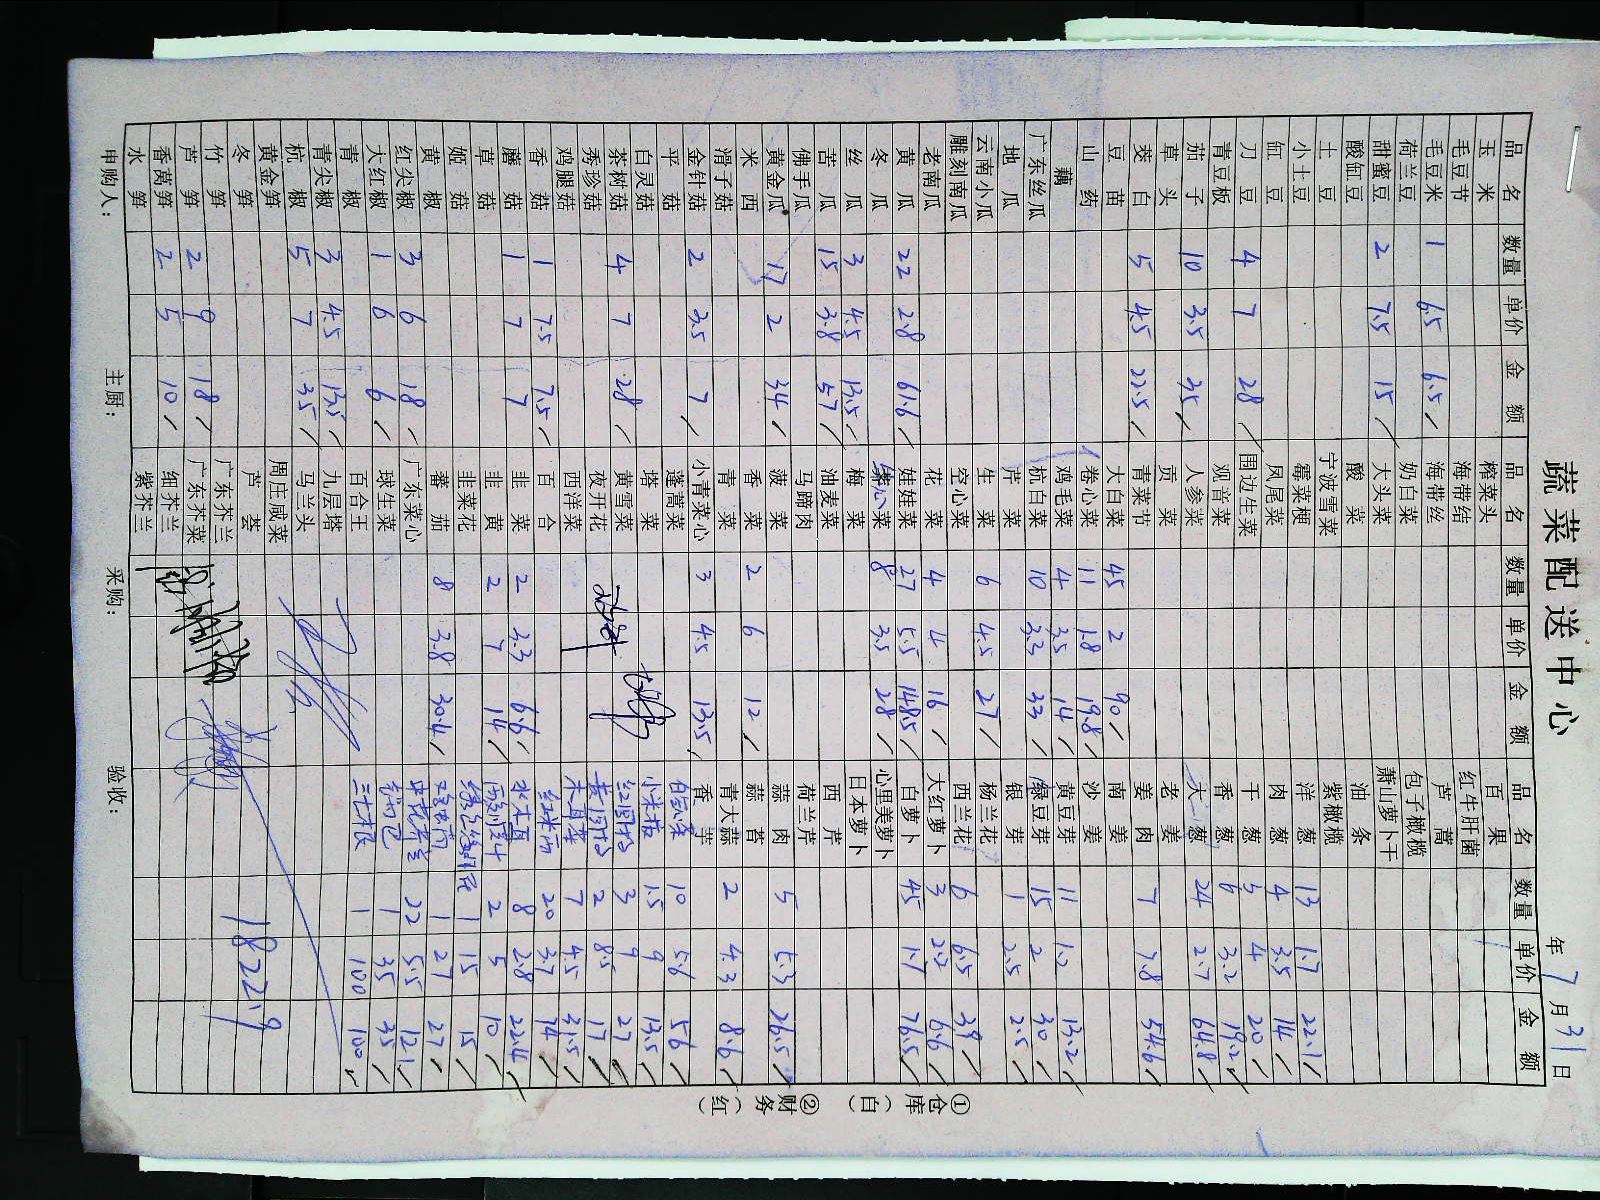 蔬菜配送中心
年 7 月 31 日
品名 数量 单价 金额 品名 数量 单价 金额 品名 数量 单价 金额
玉米 榨菜头 百果
毛豆节 海带结 红牛肝菌
毛豆米 1 6.5 6.5 海带丝 芦蒿
荷兰豆 奶白菜 包子橄榄
甜蜜豆 2 7.5 15 大头菜 萧山萝卜干
酸缸豆 酸菜 油条
土豆 宁波雪菜 紫橄榄
小土豆 霉菜梗 洋葱 13 1.7 22.1
缸豆 凤尾菜 肉葱 4 3.5 14
刀豆 4 7 28 围边生菜 干葱 5 4 20
青豆板 观音菜 香葱 6 3.2 19.2
茄子 10 3.5 35 人参菜 大葱 24 2.7 64.8
草头 贡菜 老姜
茭白 5 4.5 22.5 青菜节 姜肉 7 7.8 54.6
豆苗 大白菜 45 2 90 南姜
山药 卷心菜 11 1.8 19.8 沙姜
藕 鸡毛菜 4 3.5 14 黄豆芽 11 1.2 13.2
广东丝瓜 杭白菜 10 3.3 33 绿豆芽 15 2 30
地瓜 芹菜 银芽 1 2.5 2.5
云南小瓜 生菜 6 4.5 27 杨兰花
雕刻南瓜 空心菜 西兰花 6 6.5 39
老南瓜 花菜 4 4 16 大红萝卜 3 2.2 6.6
黄瓜 22 2.8 61.6 娃娃菜 27 5.5 148.5 白萝卜 45 1.7 76.5
冬瓜 菜 8 3.5 28 心里美萝卜
丝瓜 3 4.5 13.5 梅菜 日本萝卜
苦瓜 15 3.8 57 油麦菜 西芹
佛手瓜 马蹄肉 荷兰芹
黄金瓜 17 2 34 菠菜 蒜肉 5 5.3 26.5
米西 香菜 2 6 12 蒜苔
滑子菇 青菜 青大蒜 2 4.3 8.6
金针菇 2 3.5 7 小青菜心 3 4.5 13.5 香芋
平菇 蓬蒿菜 10 5.6 56
白灵菇 塔菜 小米椒 1.5 9 13.5
茶树菇 4 7 28 黄雪菜 3 9 27
秀珍菇 夜开花 2 8.5 17
鸡腿菇 西洋菜 木耳菜 7 4.5 31.5
香菇 1 7.5 7.5 百合 20 3.7 74
蘑菇 1 7 7 韭菜 2 3.3 6.6 水木耳 8 2.8 22.4
草菇 韭黄 2 7 14 2 5 10
姬菇 韭菜花 1 15 15
黄椒 蕃茄 8 3.8 30.4 1 27 27
红尖椒 3 6 18 广东菜心 22 5.5 121
大红椒 1 6 6 球生菜 1 35 35
青椒 百合王 1 100 100
青尖椒 3 4.5 13.5 九层塔
杭椒 5 7 35 马兰头
黄金笋 周庄咸菜
冬笋 芦荟
竹笋 广东芥兰
芦笋 2 9 18 广东芥菜
香莴笋 2 5 10 细芥兰
水笋 紫芥兰
1822.9
申购人： 主厨： 采购： 验收：
①仓库（白） ②财务（红）